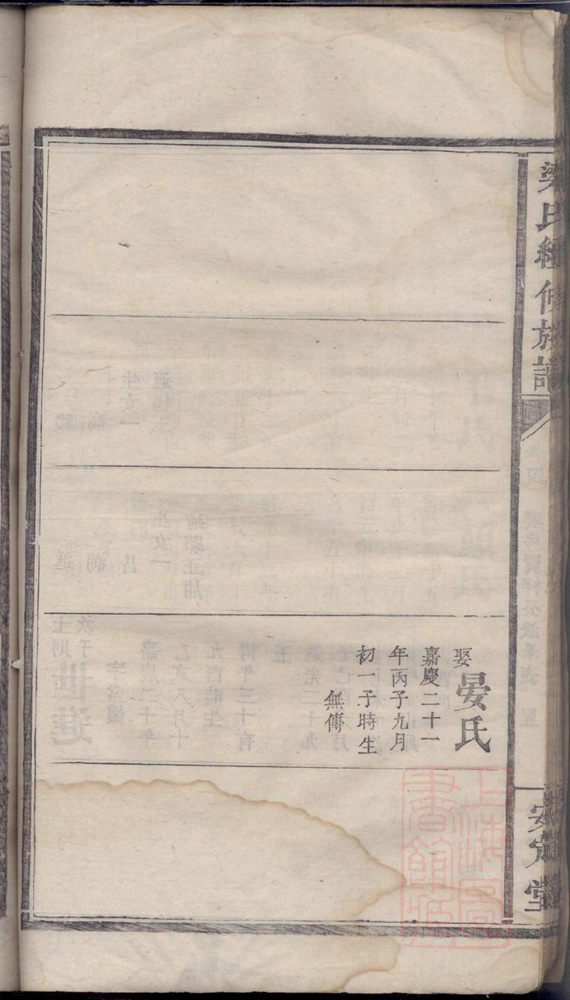 梁氏續修族譜
安定堂
娶晏氏
嘉慶二十一
年丙子九月
初一子時生
無傳
上海圖
書館藏